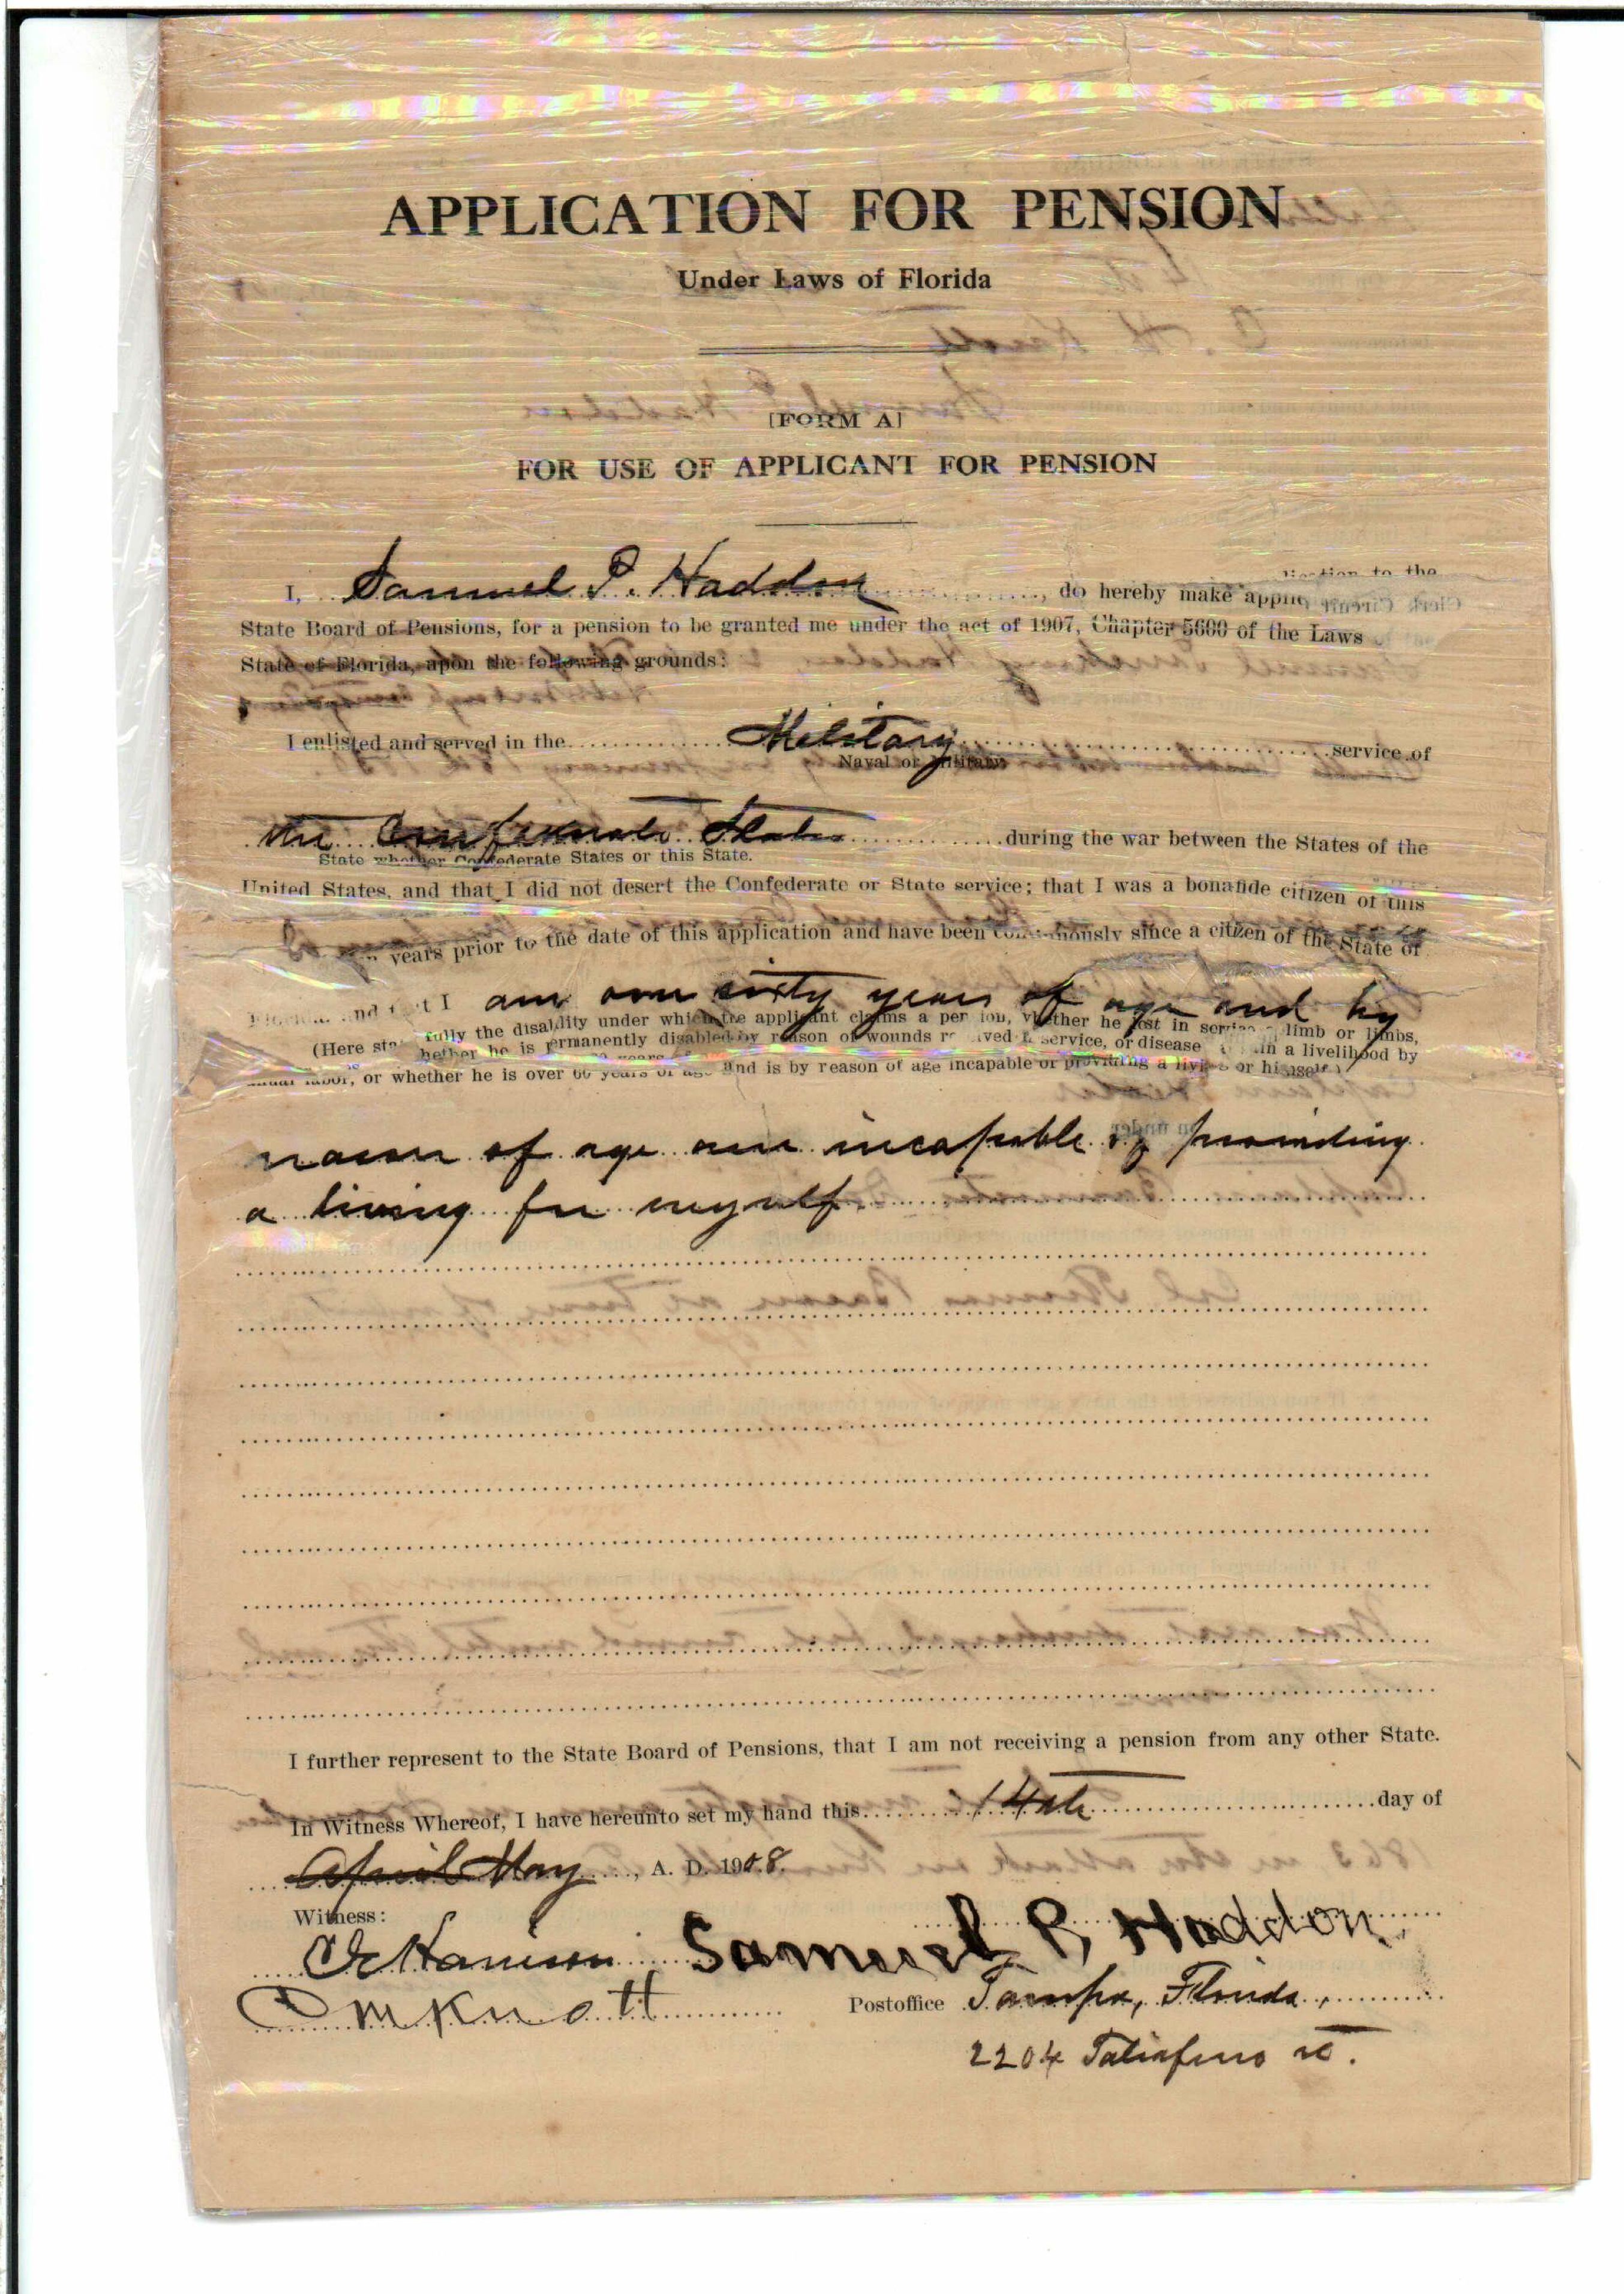 APPLICATION FOR PENSION
Under Laws of Florida
[FORM A]
FOR USE OF APPLICANT FOR PENSION
I, Samuel P. Haddon, do hereby make application to the
State Board of Pensions, for a pension to be granted me under the act of 1907, Chapter 5600 of the Laws
State of Florida, upon the following grounds:
I enlisted and served in the Military service of
Naval or Military
the Confederate States during the war between the States of the
State whether Confederate States or this State.
United States, and that I did not desert the Confederate or State service; that I was a bonafide citizen of this
years prior to the date of this application and have been continuously since a citizen of the State of
Florida and that I am over sixty years of age and by
(Here state fully the disability under which the applicant claims a pension, whether he lost in service limb or limbs,
whether he is permanently disabled by reason of wounds received in service, or disease in a livelihood by
manual labor, or whether he is over 60 years of age and is by reason of age incapable of providing a living for himself.)
reason of age am incapable of providing
a living for myself.
I further represent to the State Board of Pensions, that I am not receiving a pension from any other State.
In Witness Whereof, I have hereunto set my hand this 14th day of
April May, A. D. 1908.
Witness:
Harrison Samuel P. Haddon
C M Knott Postoffice Tampa, Florida,
2204 Taliaferro st.